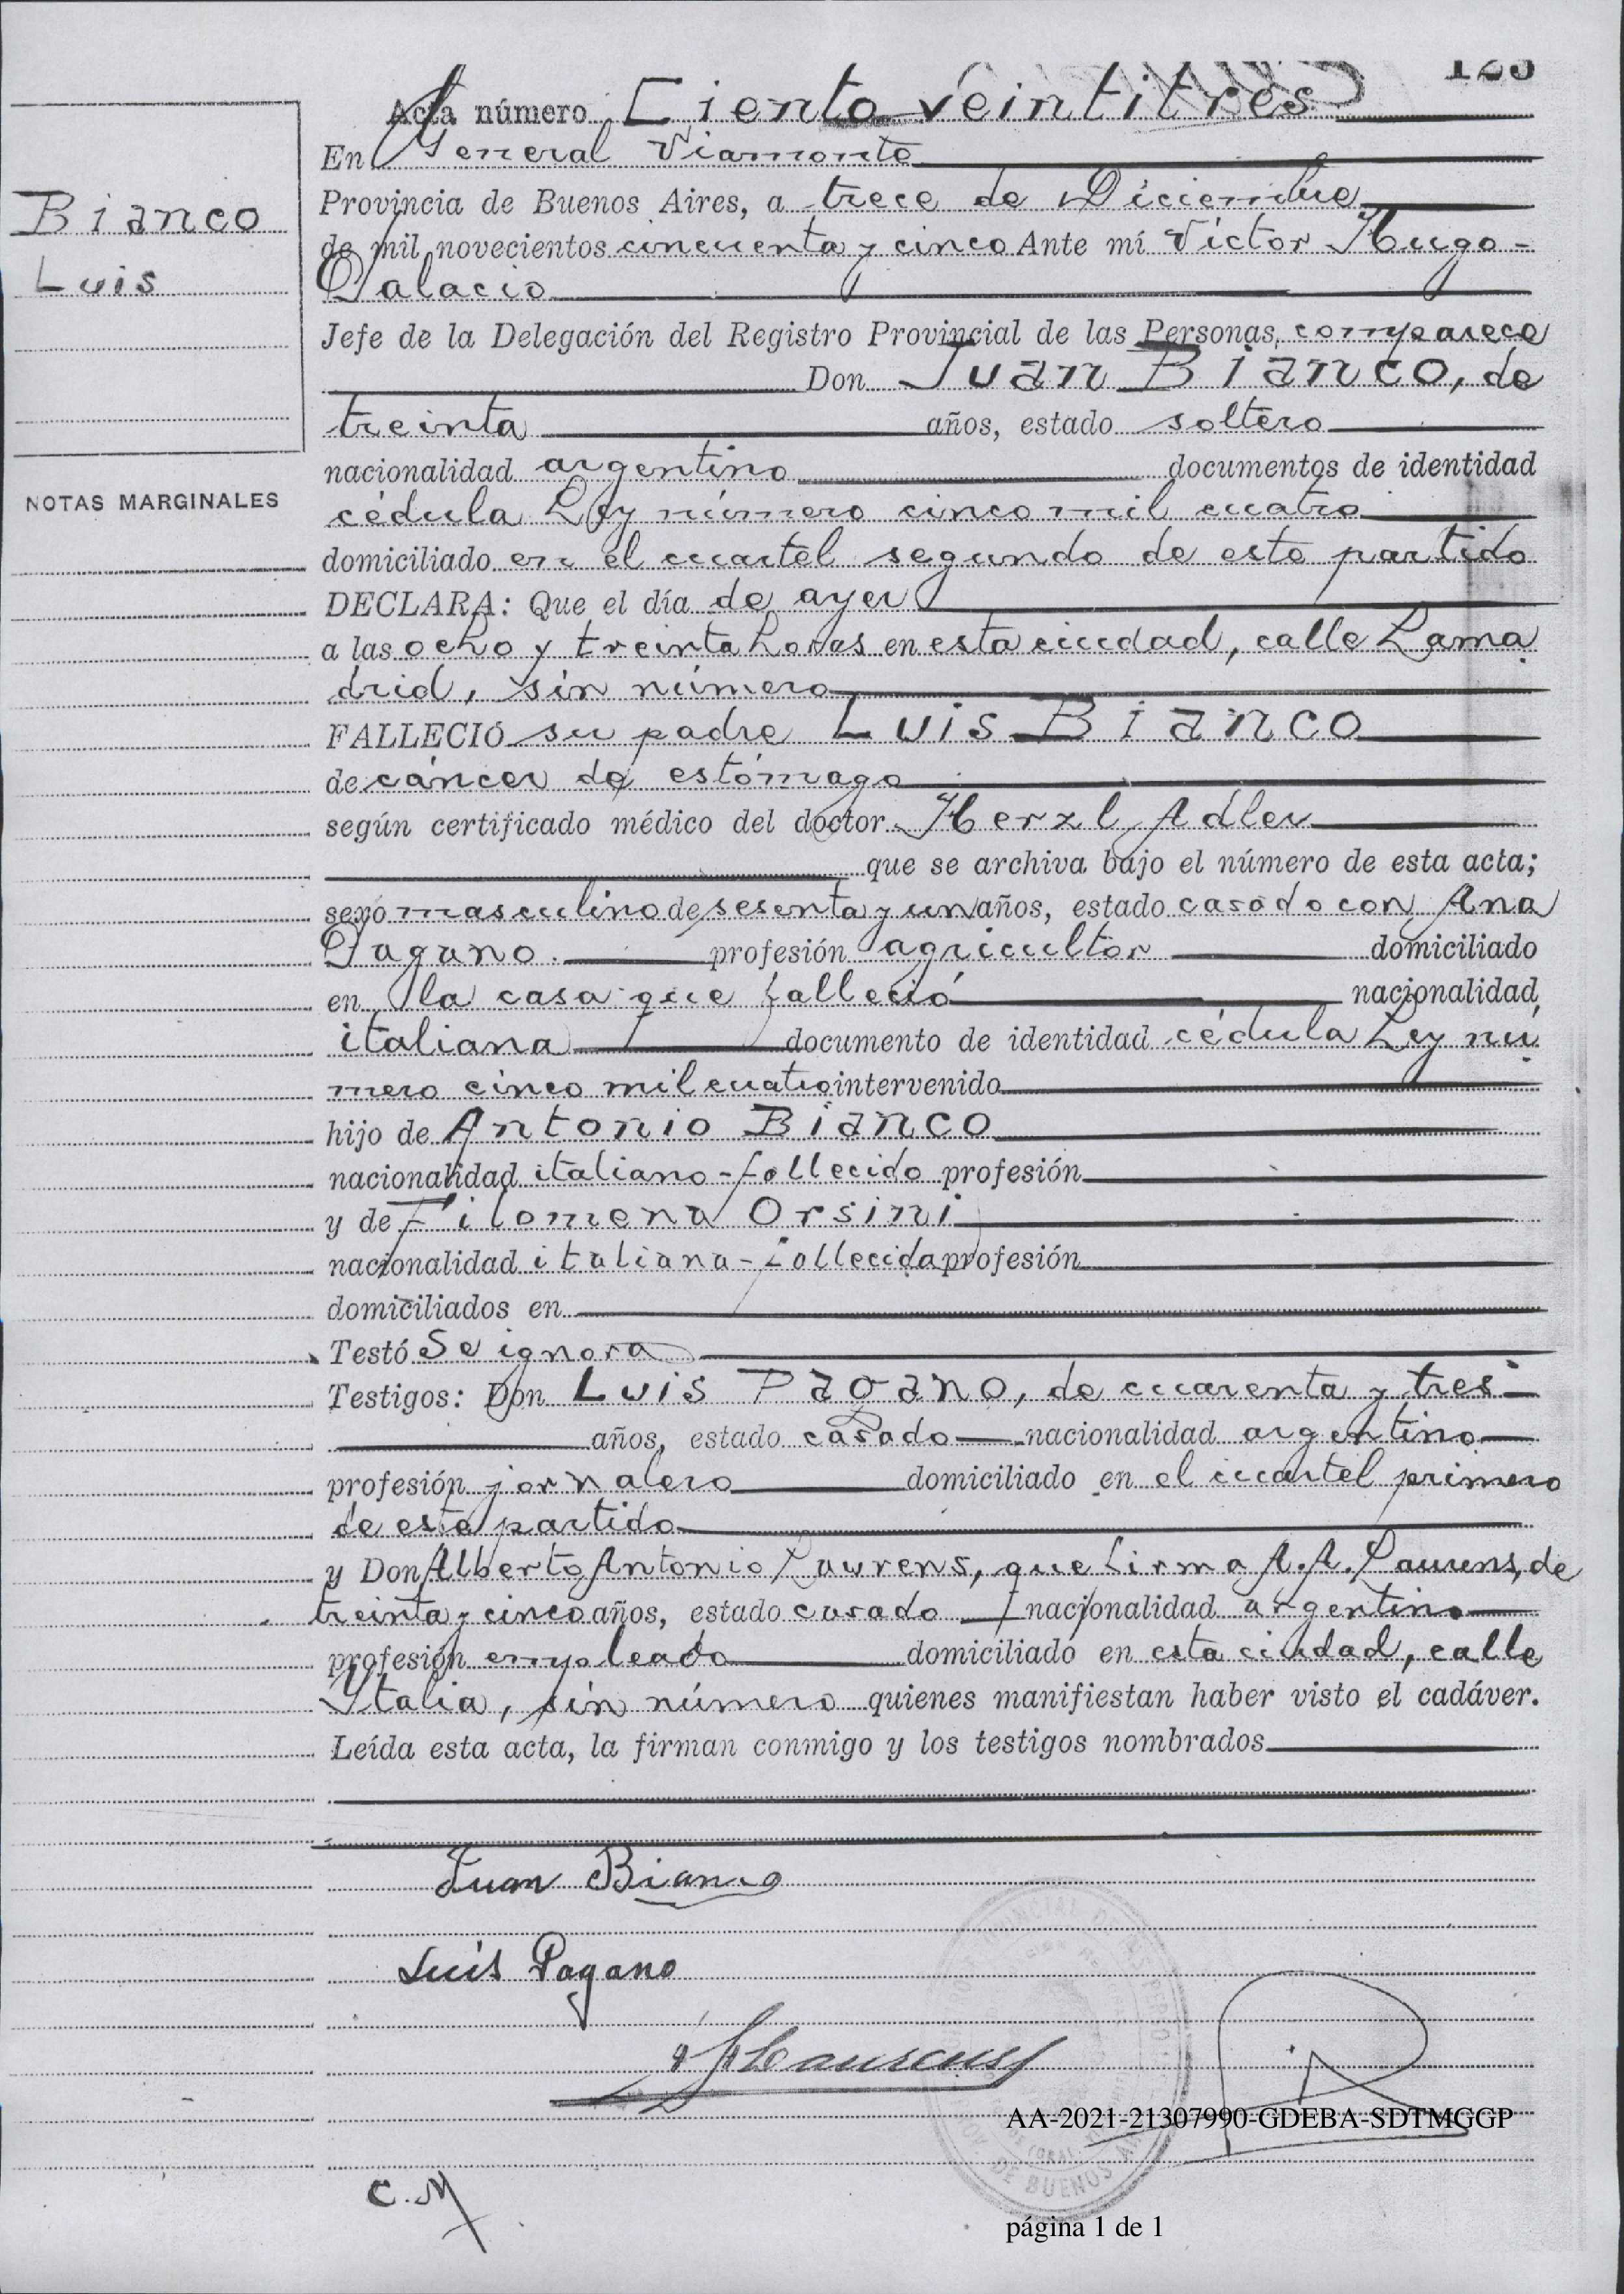 123
Acta número Ciento veintitres
En General Viamonte
Provincia de Buenos Aires, a trece de Diciembre
de mil novecientos cincuenta y cinco Ante mí Víctor Hugo -
Palacio
Jefe de la Delegación del Registro Provincial de las Personas, comparece
Don Juan Bianco, de
treinta años, estado soltero
nacionalidad argentino documentos de identidad
cédula Ley número cinco mil cuatro
domiciliado en el cuartel segundo de este partido
DECLARA: Que el día de ayer
a las ocho y treinta horas en esta ciudad, calle Lama
drid, sin número
FALLECIÓ su padre Luis Bianco
de cáncer de estómago
según certificado médico del doctor Herzl Adler
que se archiva bajo el número de esta acta;
sexo masculino de sesenta y un años, estado casado con Ana
Pagano. profesión agricultor domiciliado
en la casa que falleció nacionalidad
italiana documento de identidad cédula Ley nú
mero cinco mil cuatro intervenido
hijo de Antonio Bianco
nacionalidad italiano - fallecido profesión
y de Filomena Orsini
nacionalidad italiana - fallecida profesión
domiciliados en
Testó Se ignora
Testigos: Don Luis Pagano, de cuarenta y tres
años, estado casado nacionalidad argentino
profesión jornalero domiciliado en el cuartel primero
de este partido
y Don Alberto Antonio Laurens, que firma A.A. Laurens, de
treinta y cinco años, estado casado nacionalidad argentino
profesión empleado domiciliado en esta ciudad, calle
Italia, sin número quienes manifiestan haber visto el cadáver.
Leída esta acta, la firman conmigo y los testigos nombrados
Bianco
Luis
NOTAS MARGINALES
Juan Bianco
Luis Pagano
AALaurens
AA-2021-21307990-GDEBA-SDTMGGP
DE BUENOS
C.M
página 1 de 1